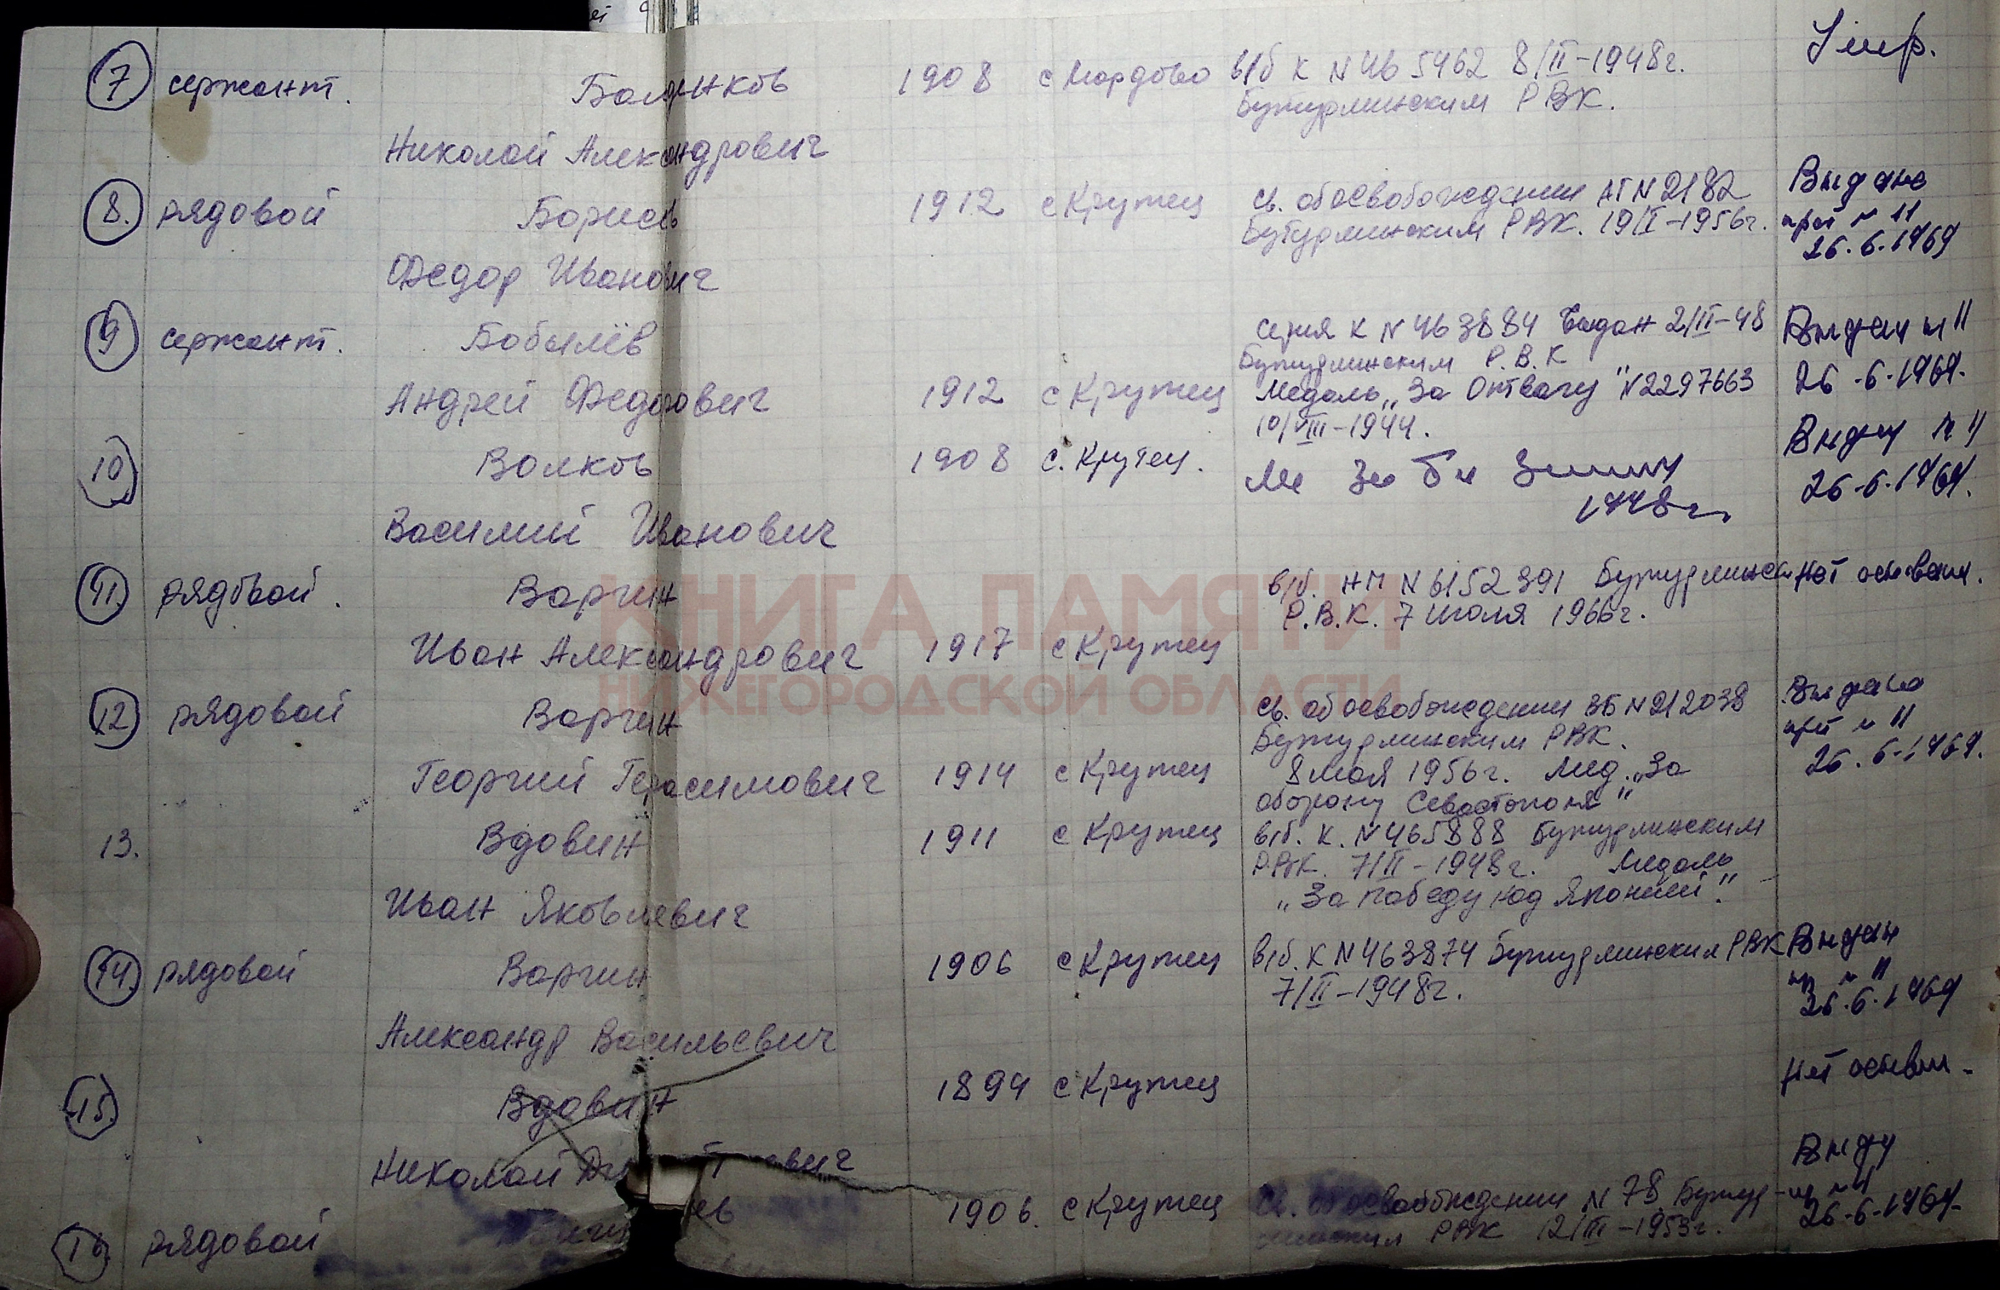 7 сержант. Баландинков 1908 с Мордово в/б К N 465462 8/II-1948г. Умер.
Бутурлинским РВК.
Николай Александрович
8. рядовой Борисов 1912 с Крутец св. об освобождении АГ N 2182 Выдано
Бутурлинским РВК. 19/I-1956г. 11
Федор Иванович 26.6.1969
9 сержант. Бобылёв серия К N 463884 Выдан 2/II-48 Выдан 11
Бутурлинским Р.В.К
Андрей Федорович 1912 с Крутец Медаль „За Отвагу" N 2297663 26-6-1969.
10/VIII-1944.
10 Волков 1908 с. Крутец. 11
1948г. 26-6-1969.
Василий Иванович
11. рядовой. Варгин в/б. НП N 6152391 Бутурлинск Нет основан.
Р.В.К. 7 июля 1966г.
КНИГА ПАМЯТИ
Иван Александрович 1917 с Крутец
НИЖЕГОРОДСКОЙ ОБЛАСТИ
12 рядовой Варгин св. об освобождении ЗБ N 212038 Выдано
Бутурлинским РВК. 11
Георгий Герасимович 1914 с Крутец 8 мая 1956г. Мед. „За 26.6-1969.
оборону Севастополя"
13. Вдовин 1911 с Крутец в/б. К. N 465888 Бутурлинским
РВК. 7/II-1948г. Медаль
Иван Яковлевич „За победу над Японией".
14. рядовой Варгин 1906 с Крутец в/б. К N 463874 Бутурлинским РВК Выдан
7/II-1948г. 11
26.6.1969
Александр Васильевич
15 Вдовин 1894 с Крутец Нет основан.
Николай
1906. с Крутец св. об освобождении N 78 Бутур- 11
16. рядовой РВК 12/III-1953г. 26-6-1969.